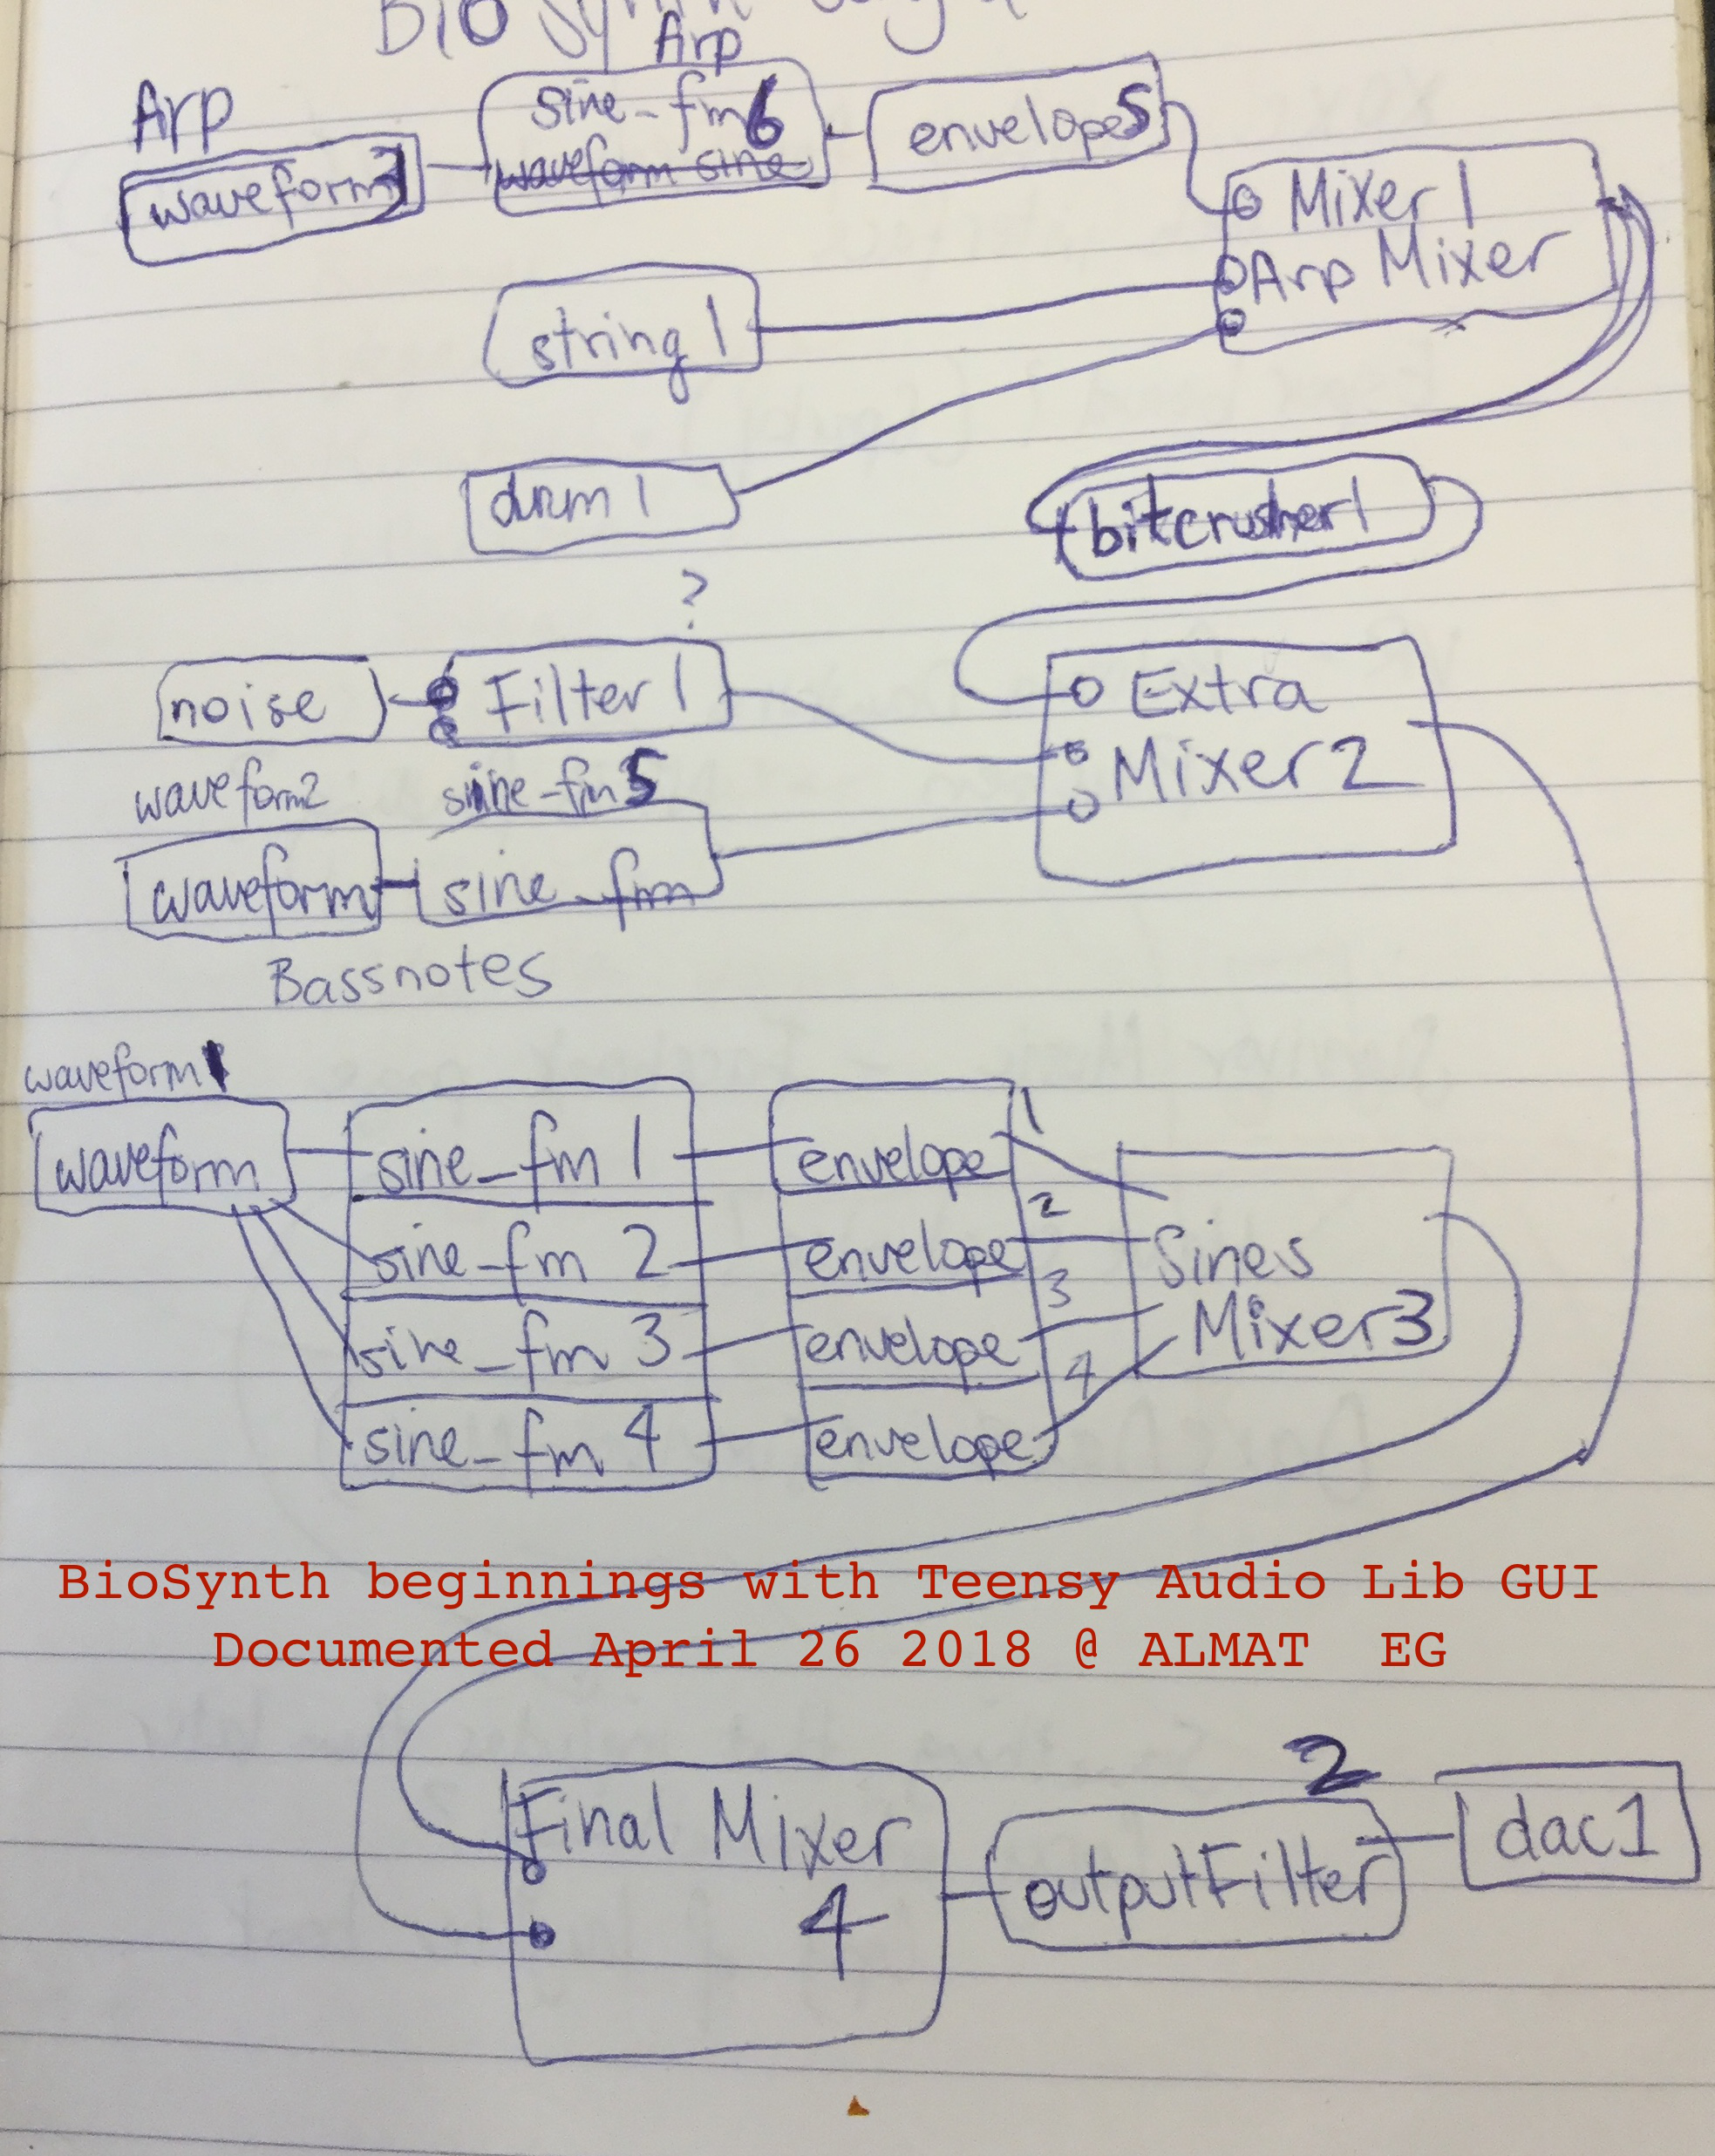 Arp
Arp
sine_fm6
waveform sine
envelope5
waveform3
Mixer1
Arp Mixer
string1
drum1
bitcrusher1
?
noise
Filter1
Extra
Mixer2
waveform2
sine_fm5
waveform
sine_fm
Bassnotes
waveform1
waveform
sine_fm 1
envelope
1
sine_fm 2
envelope
2
sine_fm 3
envelope
3
sine_fm 4
envelope
4
Sines
Mixer3
BioSynth beginnings with Teensy Audio Lib GUI
Documented April 26 2018 @ ALMAT EG
Final Mixer
4
2
outputFilter
dac1